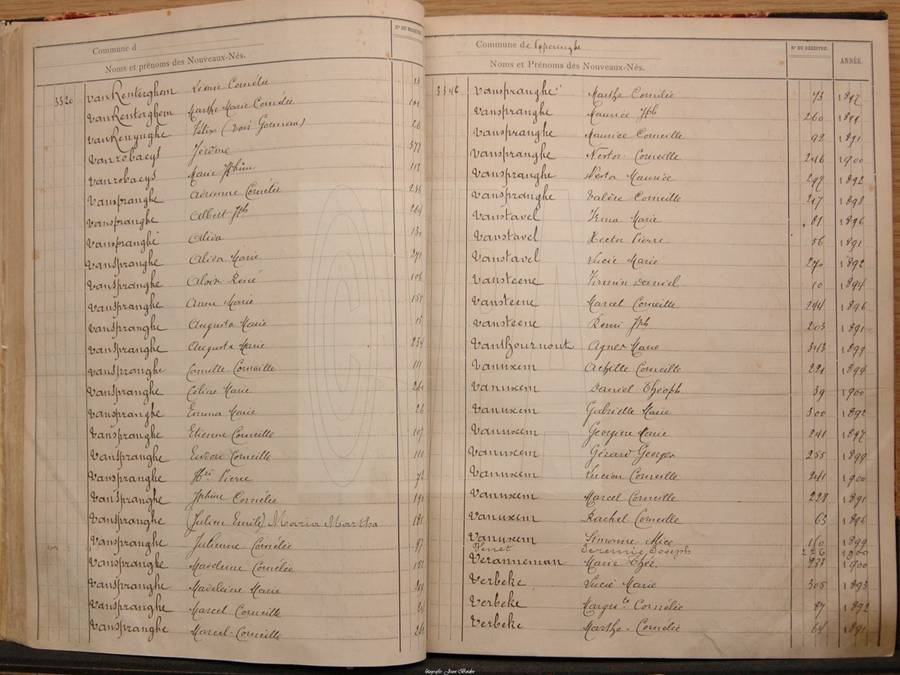 Commune d
Noms et prénoms des Nouveaux-Nés.
N° DU REGISTRE
3320 VanRenterghem Léonie Cornélie
VanRenterghem Marthe Marie Cornélie 102
VanRenynghe Félix (voir Germain) 26
Vanrobaeys Jérôme 377
Vanrobaeys Marie Jphine 112
Vanspranghe Adrienne Cornélie 238
Vanspranghe Albert Jph 264
Vanspranghe Alida 130
Vanspranghe Alida Marie 271
Vanspranghe Aloïs René 106
Vanspranghe Anna Marie 151
Vanspranghe Augusta Marie 15
Vanspranghe Augusta Marie 234
Vanspranghe Camille Corneille 111
Vanspranghe Céline Marie 261
Vanspranghe Emma Marie 26
Vanspranghe Etienne Corneille 107
Vanspranghe Eudore Corneille 111
Vanspranghe Hri Pierre 72
Vanspranghe Jphine Cornélie 191
Vanspranghe (Julien Emile) Maria Martha 181
Vanspranghe Julienne Cornélie 97
Vanspranghe Madeleine Cornélie 151
Vanspranghe Madeleine Marie 309
Vanspranghe Marcel Corneille 21
Vanspranghe Marcel-Corneille 261
Commune de Poperinghe
Noms et Prénoms des Nouveaux-Nés.
N° DU REGISTRE. ANNÉE.
3346 Vanspranghe Marthe Cornélie 73 1897
Vanspranghe Maurice Jph 260 1899
Vanspranghe Maurice Corneille 92 1891
Vanspranghe Nestor Corneille 246 1900
Vanspranghe Nestor Maurice 297 1892
Vanspranghe Valère Corneille 217 1898
Vanstavel Irma Marie 81 1896
Vanstavel Hector Pierre 56 1891
Vanstavel Lucie Marie 270 1892
Vansteene Firmin Daniel 10 1894
Vansteene Marcel Corneille 294 1896
Vansteene Remi Jph 203 1891
Vanthournout Agnes Marie 343 1899
Vanuxem Achille Corneille 221 1894
Vanuxem Daniel Théoph. 39 1900
Vanuxem Gabrielle Marie 300 1892
Vanuxem Georgine Marie 241 1897
Vanuxem Gérard Georges 255 1899
Vanuxem Lucien Corneille 241 1900
Vanuxem Marcel Corneille 228 1891
Vanuxem Rachel Corneille 63 1896
Vanuxem Simonne Alice 160 1899
Venet Jeremie Joseph 226 1900
Veranneman Marie Thér. 237 1900
Verbeke Lucie Marie 305 1893
Verbeke Margu te Cornélie 87 1892
Verbeke Marthe-Cornélie 64 1891